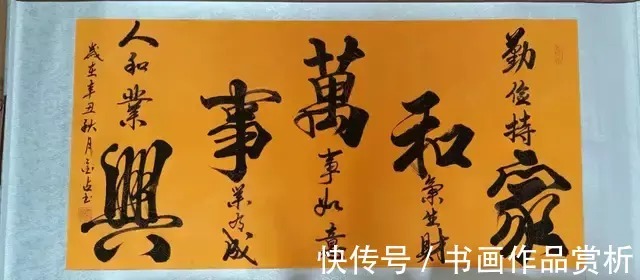 勤俭持家
和氣生财
萬事如意
事業有成
人和業興
歲在辛丑秋月
快传号 / 书画作品赏析